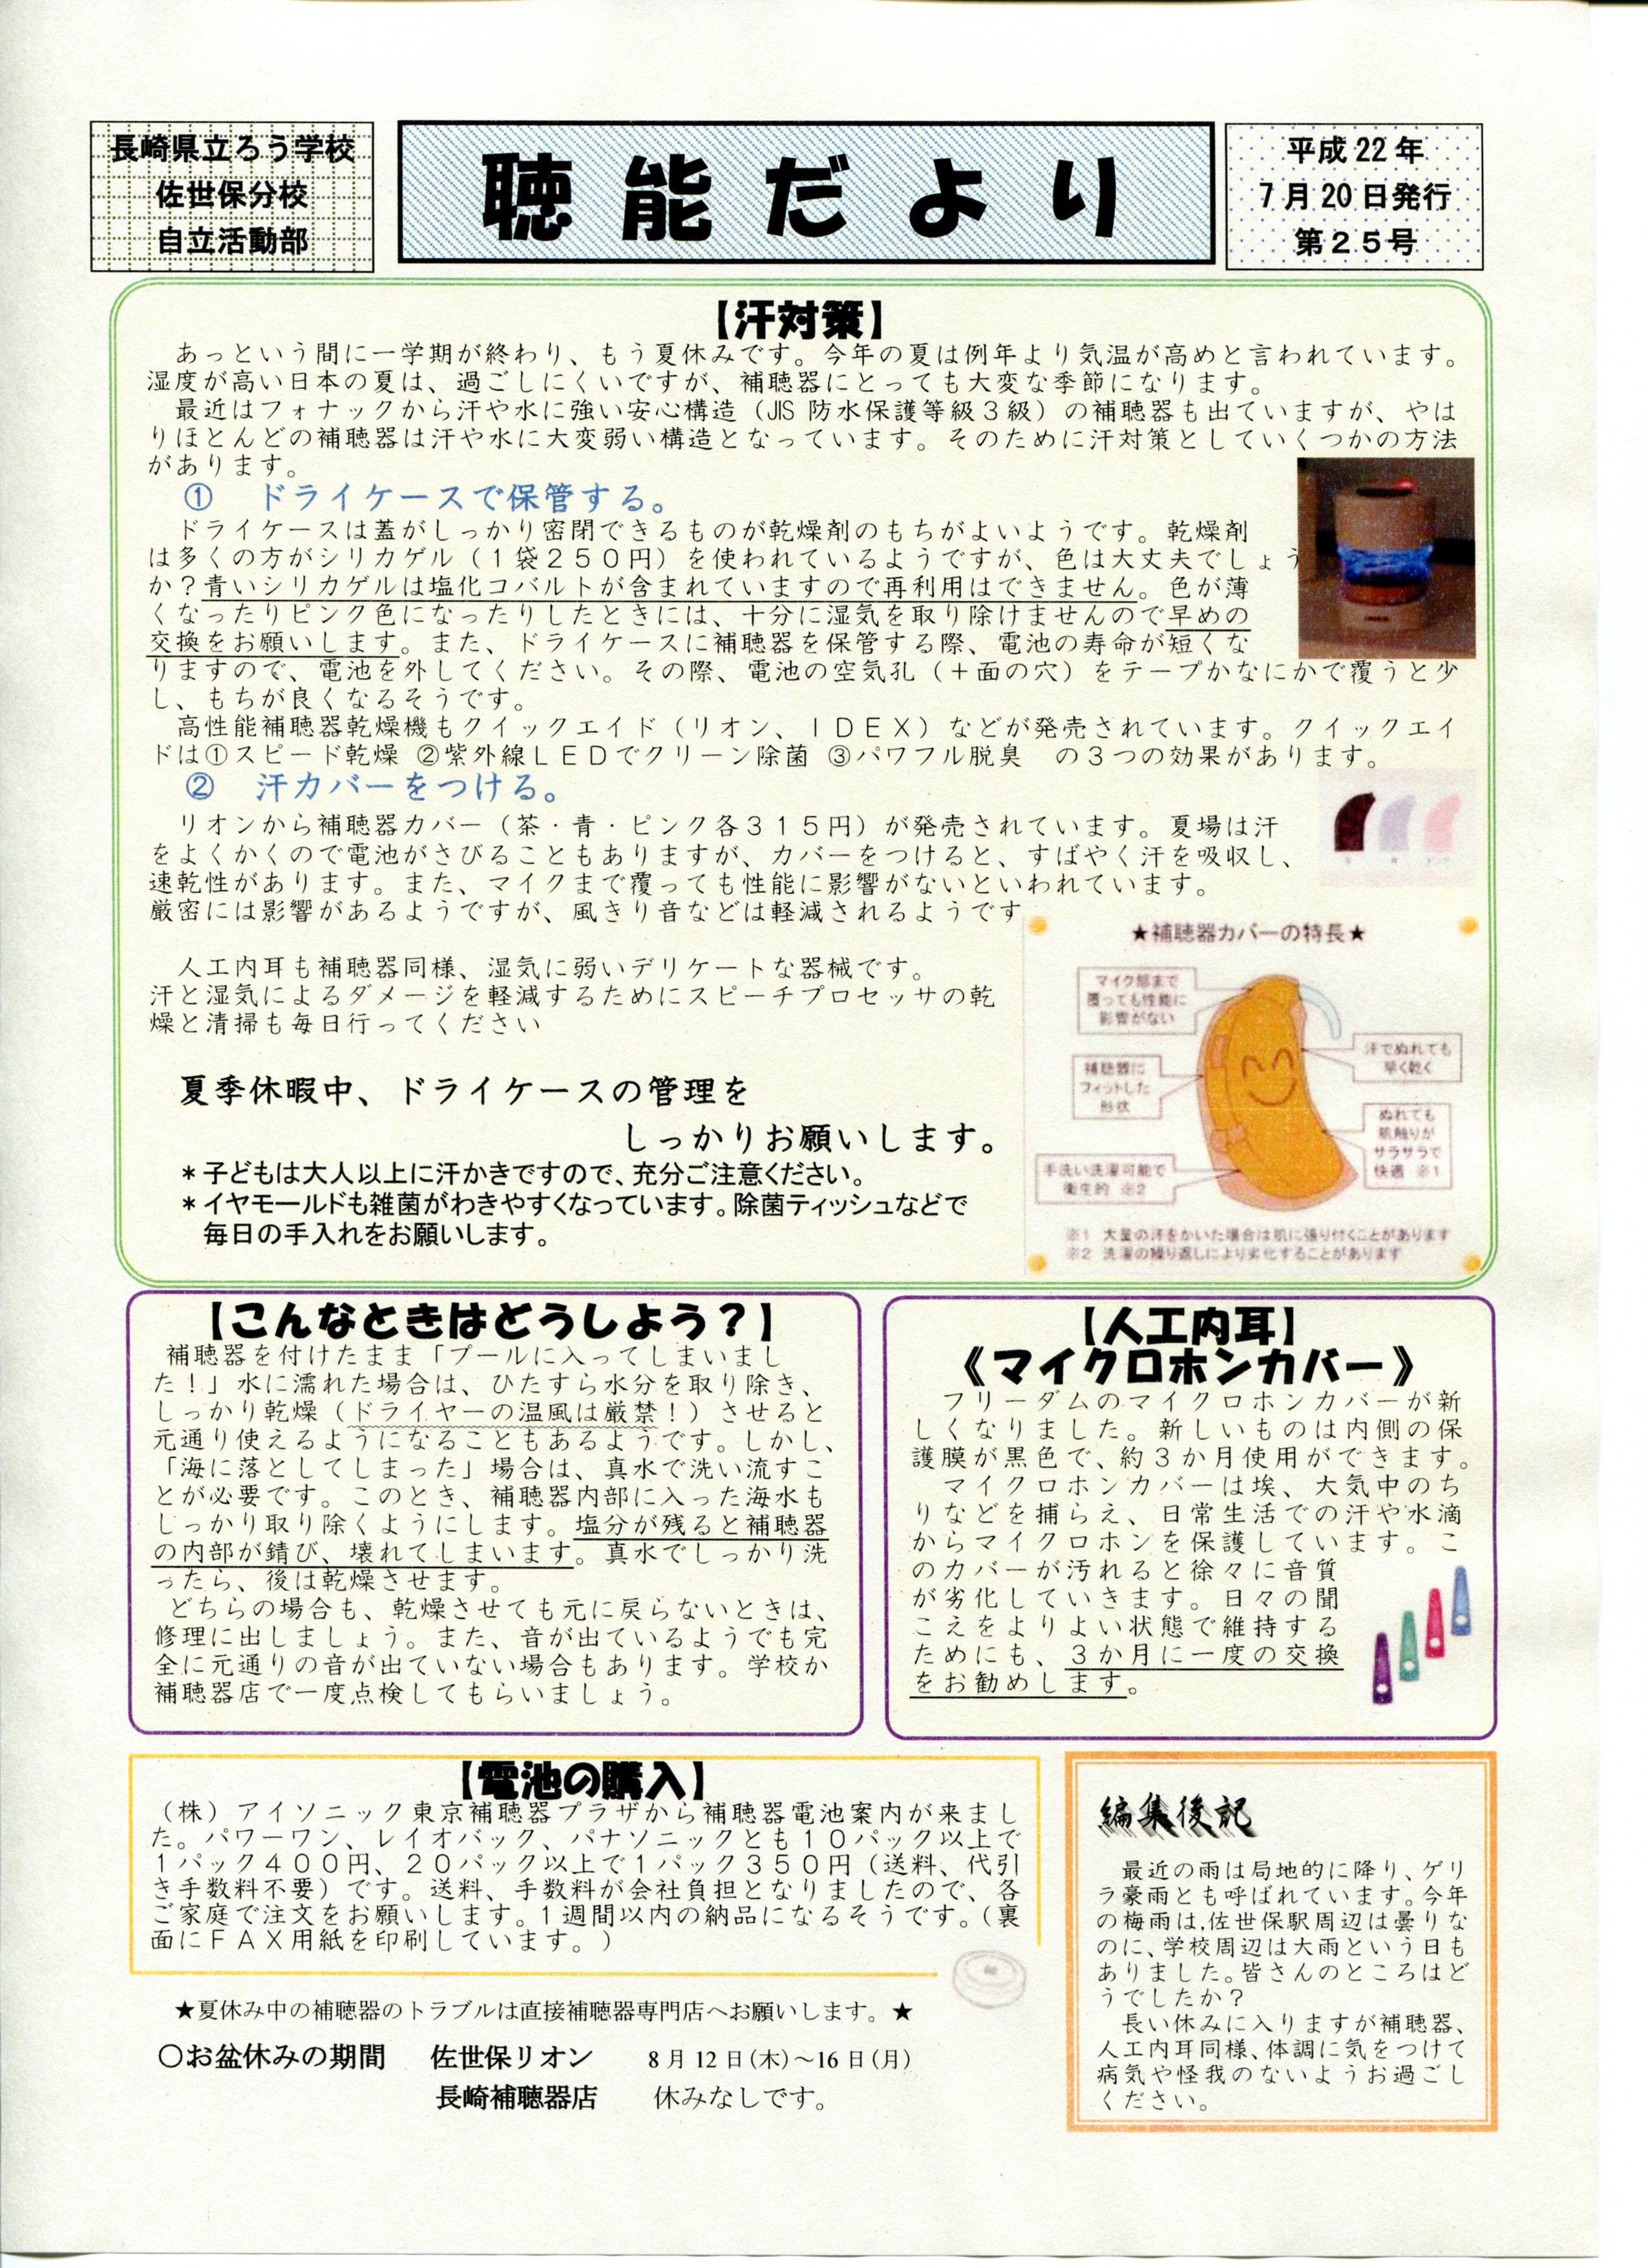 長崎県立ろう学校
佐世保分校
自立活動部
聴能だより
平成22年
7月20日発行
第25号
【汗対策】
あっという間に一学期が終わり、もう夏休みです。今年の夏は例年より気温が高めと言われています。
湿度が高い日本の夏は、過ごしにくいですが、補聴器にとっても大変な季節になります。
最近はフォナックから汗や水に強い安心構造（JIS 防水保護等級３級）の補聴器も出ていますが、やは
りほとんどの補聴器は汗や水に大変弱い構造となっています。そのために汗対策としていくつかの方法
があります。
①　ドライケースで保管する。
ドライケースは蓋がしっかり密閉できるものが乾燥剤のもちがよいようです。乾燥剤
は多くの方がシリカゲル（１袋２５０円）を使われているようですが、色は大丈夫でしょう
か？青いシリカゲルは塩化コバルトが含まれていますので再利用はできません。色が薄
くなったりピンク色になったりしたときには、十分に湿気を取り除けませんので早めの
交換をお願いします。また、ドライケースに補聴器を保管する際、電池の寿命が短くな
りますので、電池を外してください。その際、電池の空気孔（＋面の穴）をテープかなにかで覆うと少
し、もちが良くなるそうです。
高性能補聴器乾燥機もクイックエイド（リオン、ＩＤＥＸ）などが発売されています。クイックエイ
ドは①スピード乾燥 ②紫外線ＬＥＤでクリーン除菌 ③パワフル脱臭　の３つの効果があります。
②　汗カバーをつける。
リオンから補聴器カバー（茶・青・ピンク各３１５円）が発売されています。夏場は汗
をよくかくので電池がさびることもありますが、カバーをつけると、すばやく汗を吸収し、
速乾性があります。また、マイクまで覆っても性能に影響がないといわれています。
厳密には影響があるようですが、風きり音などは軽減されるようです
人工内耳も補聴器同様、湿気に弱いデリケートな器械です。
汗と湿気によるダメージを軽減するためにスピーチプロセッサの乾
燥と清掃も毎日行ってください
夏季休暇中、ドライケースの管理を
しっかりお願いします。
＊子どもは大人以上に汗かきですので、充分ご注意ください。
＊イヤモールドも雑菌がわきやすくなっています。除菌ティッシュなどで
毎日の手入れをお願いします。
★補聴器カバーの特長★
マイク部まで
覆っても性能に
影響がない
補聴器に
フィットした
形状
手洗い洗濯可能で
衛生的 ※2
汗でぬれても
早く乾く
ぬれても
肌触りが
サラサラで
快適 ※1
※1 大量の汗をかいた場合は肌に張り付くことがあります
※2 洗濯の繰り返しにより劣化することがあります
【こんなときはどうしよう？】
補聴器を付けたまま「プールに入ってしまいまし
た！」水に濡れた場合は、ひたすら水分を取り除き、
しっかり乾燥（ドライヤーの温風は厳禁！）させると
元通り使えるようになることもあるようです。しかし、
「海に落としてしまった」場合は、真水で洗い流すこ
とが必要です。このとき、補聴器内部に入った海水も
しっかり取り除くようにします。塩分が残ると補聴器
の内部が錆び、壊れてしまいます。真水でしっかり洗
ったら、後は乾燥させます。
どちらの場合も、乾燥させても元に戻らないときは、
修理に出しましょう。また、音が出ているようでも完
全に元通りの音が出ていない場合もあります。学校か
補聴器店で一度点検してもらいましょう。
【人工内耳】
《マイクロホンカバー》
フリーダムのマイクロホンカバーが新
しくなりました。新しいものは内側の保
護膜が黒色で、約３か月使用ができます。
マイクロホンカバーは埃、大気中のち
りなどを捕らえ、日常生活での汗や水滴
からマイクロホンを保護しています。こ
のカバーが汚れると徐々に音質
が劣化していきます。日々の聞
こえをよりよい状態で維持する
ためにも、３か月に一度の交換
をお勧めします。
【電池の購入】
（株）アイソニック東京補聴器プラザから補聴器電池案内が来まし
た。パワーワン、レイオバック、パナソニックとも１０パック以上で
１パック４００円、２０パック以上で１パック３５０円（送料、代引
き手数料不要）です。送料、手数料が会社負担となりましたので、各
ご家庭で注文をお願いします。１週間以内の納品になるそうです。（裏
面にＦＡＸ用紙を印刷しています。）
★夏休み中の補聴器のトラブルは直接補聴器専門店へお願いします。★
〇お盆休みの期間　佐世保リオン　8月12日（木）～16日（月）
長崎補聴器店　休みなしです。
編集後記
最近の雨は局地的に降り、ゲリ
ラ豪雨とも呼ばれています。今年
の梅雨は,佐世保駅周辺は曇りな
のに、学校周辺は大雨という日も
ありました。皆さんのところはど
うでしたか？
長い休みに入りますが補聴器、
人工内耳同様、体調に気をつけて
病気や怪我のないようお過ごし
ください。